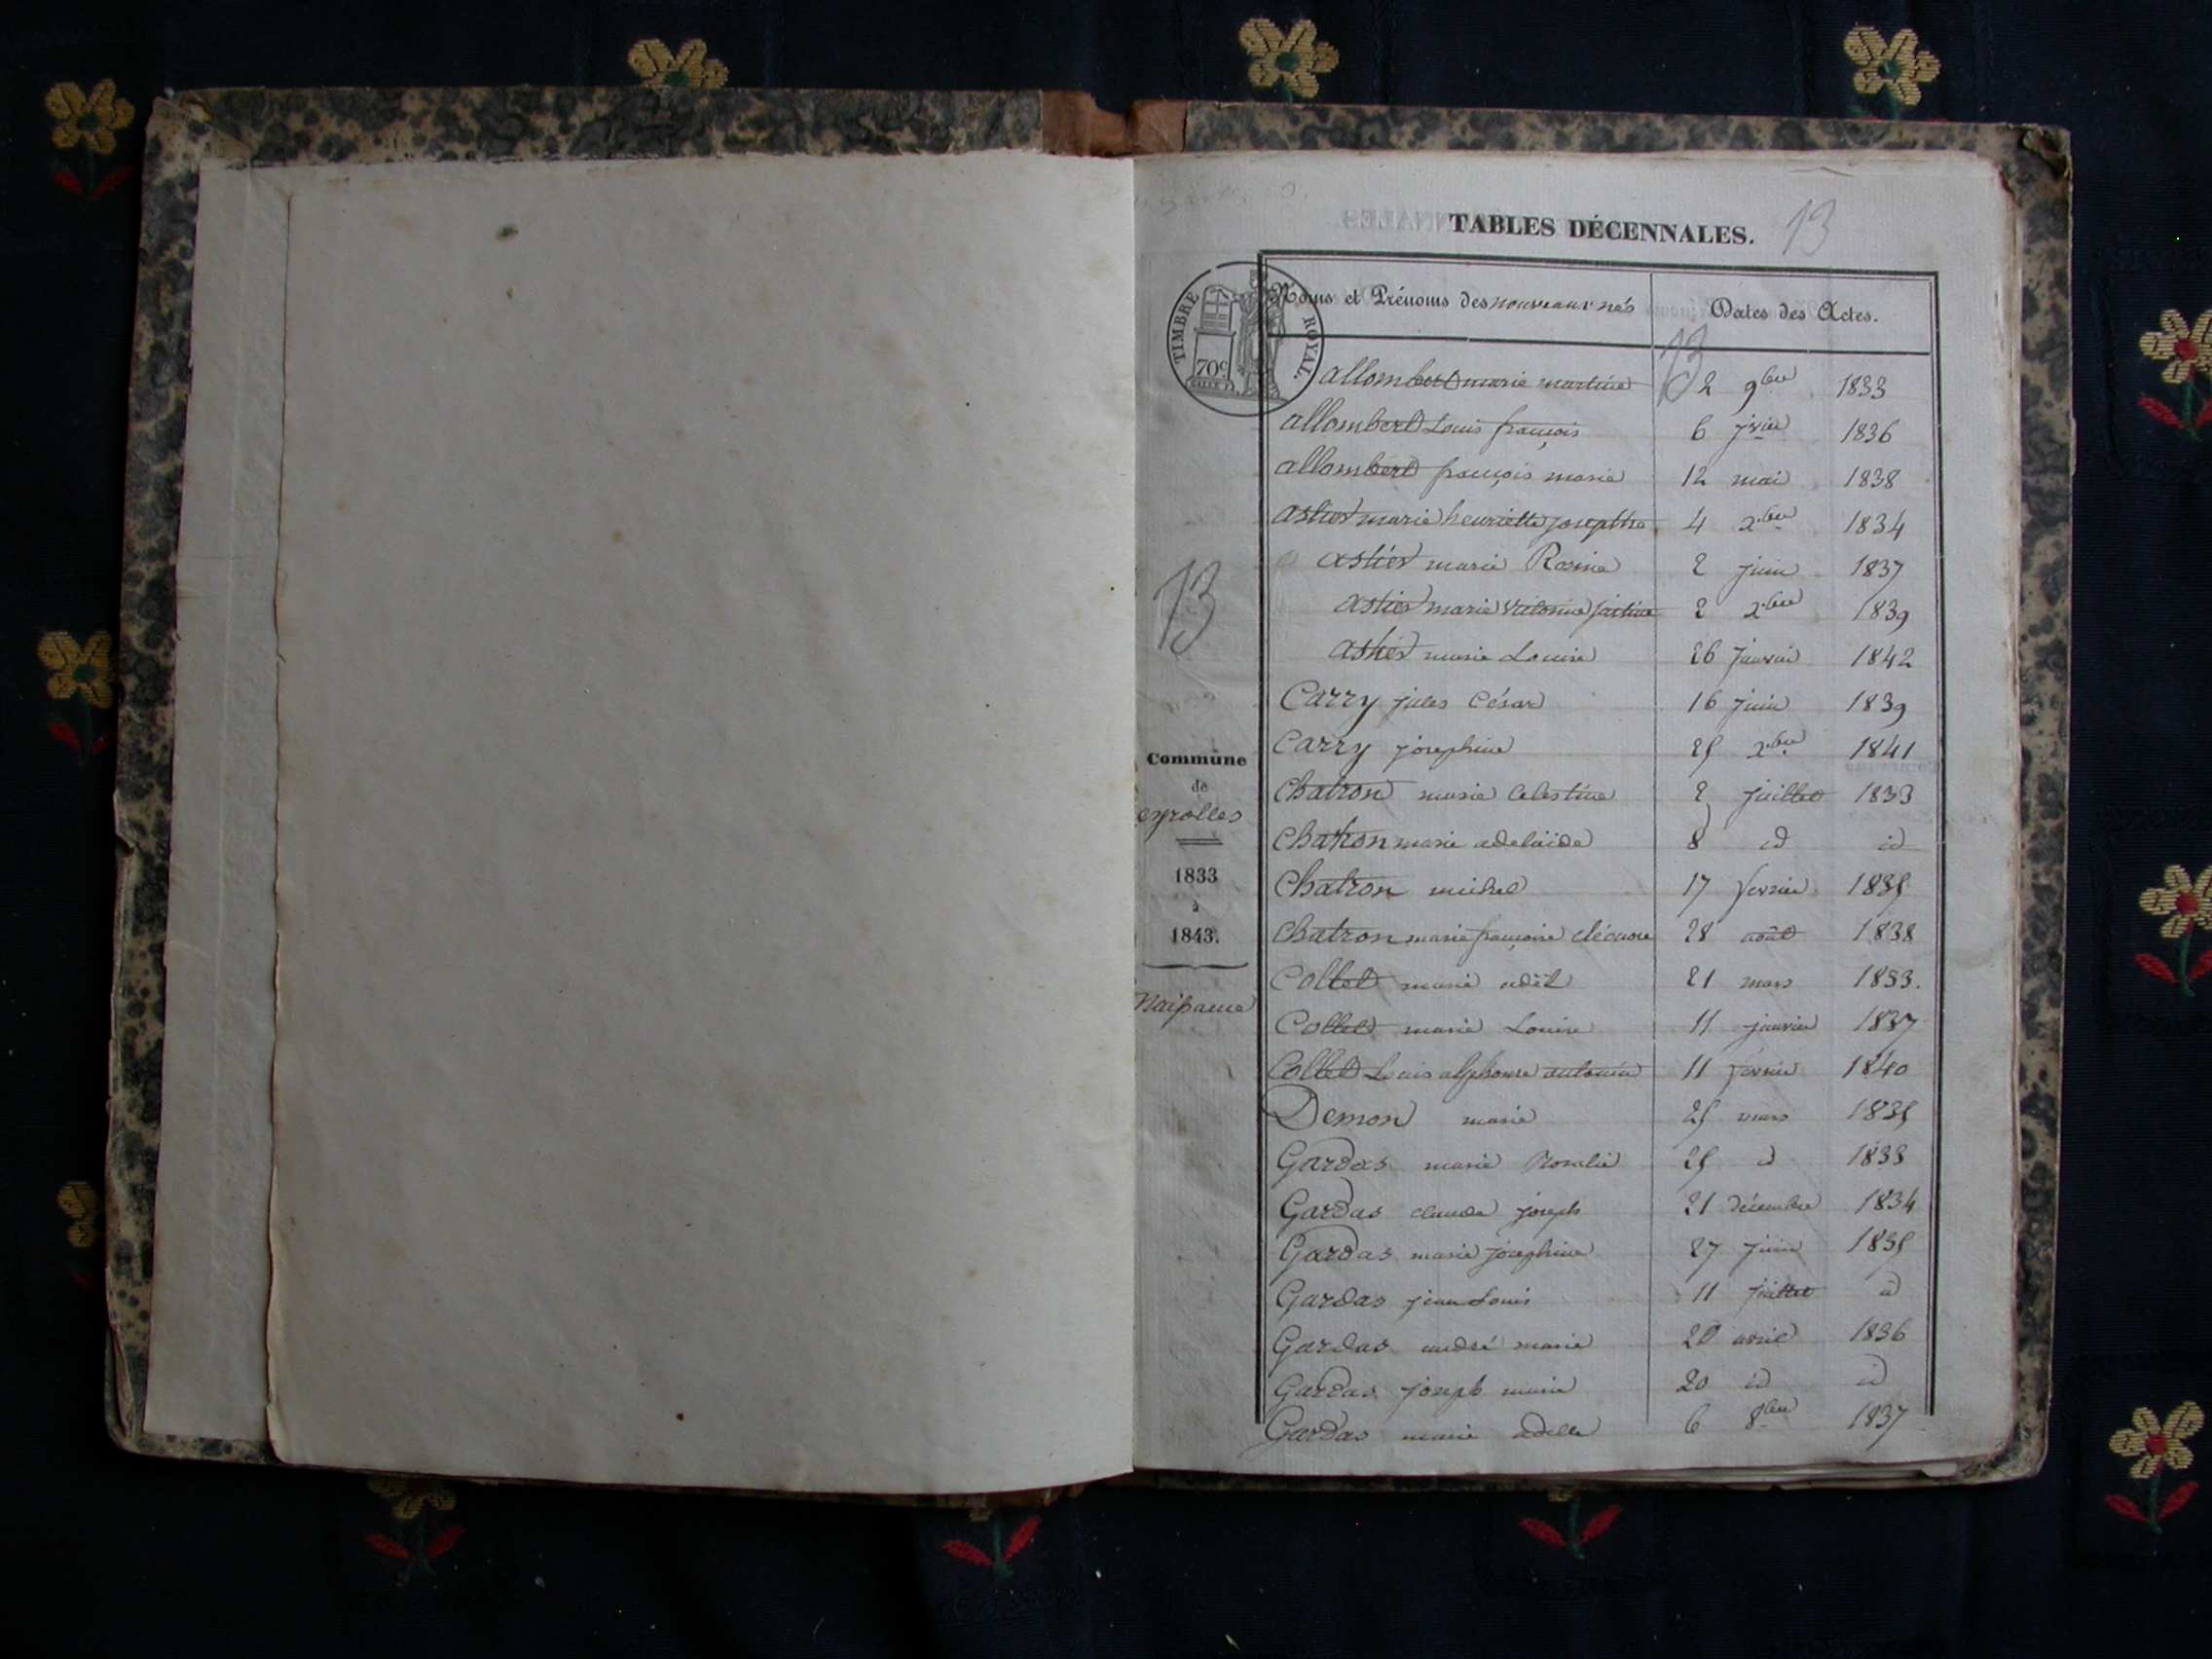 TABLES DÉCENNALES. 13
TIMBRE ROYAL.
70c
Noms et Prénoms des nouveaux nés Dates des Actes.
13
allombert marie martine 2 9bre 1833
allombert Louis françois 6 jvier 1836
allombert françois marie 12 mai 1838
astier marie henriette josepthe 4 xbre 1834
astier marie Rosine 2 juin 1837
astier marie justine 2 xbre 1839
astier marie Louise 26 janvier 1842
Carry jules César 16 juin 1839
Carry josephine 25 xbre 1841
Chatron marie Celestine 2 juillet 1833
Chatron marie adelaïde 8 id id
Chatron michel 17 fevrier 1835
Chatron marie françoise éléonore 28 août 1838
Collet marie adèl 21 mars 1833.
Collet marie Louise 11 janvier 1837
Collet Louis alphonse antonin 11 fevrier 1840
Demon marie 25 mars 1835
Gardas marie Rosalie 25 id 1833
Gardas claude joseph 21 décembre 1834
Gardas marie josephine 27 juin 1835
Gardas jean Louis 11 juillet id
Gardas andré marie 20 avril 1836
Gardas joseph marie 20 id id
Gardas marie adelle 6 8bre 1837
13
Commune
de
eyrolles
1833
à
1843.
Naissance